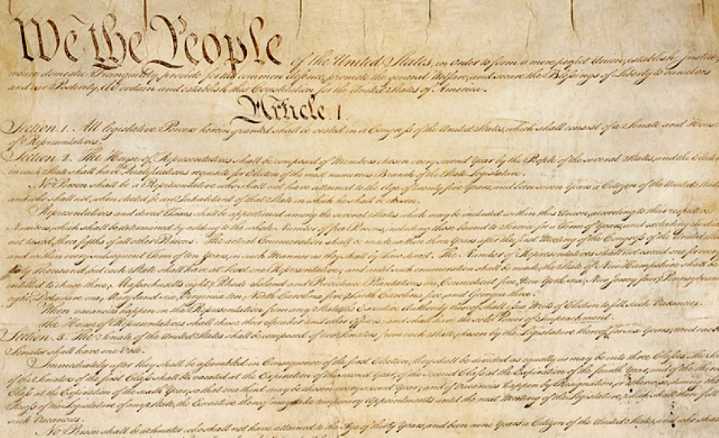 We the People of the United States, in Order to form a more perfect Union, establish Justice,
insure domestic Tranquility, provide for the common defence, promote the general Welfare, and secure the Blessings of Liberty to ourselves
and our Posterity, do ordain and establish this Constitution for the United States of America.
Article. I.
Section. 1. All legislative Powers herein granted shall be vested in a Congress of the United States, which shall consist of a Senate and House
of Representatives.
Section. 2. The House of Representatives shall be composed of Members chosen every second Year by the People of the several States, and the
in each State shall have Qualifications requisite for Electors of the most numerous Branch of the State Legislature.
No Person shall be a Representative who shall not have attained to the Age of twenty five Years, and been seven Years a Citizen of the United
and who shall not, when elected, be an Inhabitant of that State in which he shall be chosen.
Representatives and direct Taxes shall be apportioned among the several States which may be included within this Union, according to their respective
Numbers, which shall be determined by adding to the whole Number of free Persons, including those bound to Service for a Term of Years, and excluding
not taxed, three fifths of all other Persons. The actual Enumeration shall be made within three Years after the first Meeting of the Congress of the
and within every subsequent Term of ten Years, in such Manner as they shall by Law direct. The Number of Representatives shall not exceed one for
thirty Thousand, but each State shall have at Least one Representative; and until such enumeration shall be made, the State of New Hampshire shall be
entitled to chuse three, Massachusetts eight, Rhode Island and Providence Plantations one, Connecticut five, New York six, New Jersey four, Pennsylvania
eight, Delaware one, Maryland six, Virginia ten, North Carolina five, South Carolina five, and Georgia three.
When vacancies happen in the Representation from any State, the Executive Authority thereof shall issue Writs of Election to fill such Vacancies.
The House of Representatives shall chuse their Speaker and other Officers; and shall have the sole Power of Impeachment.
Section. 3. The Senate of the United States shall be composed of two Senators from each State, chosen by the Legislature thereof, for six Years; and each
Senator shall have one Vote.
Immediately after they shall be assembled in Consequence of the first Election, they shall be divided as equally as may be into three Classes. The
of the Senators of the first Class shall be vacated at the Expiration of the second Year, of the second Class at the Expiration of the fourth Year, and of the
Class at the Expiration of the sixth Year, so that one third may be chosen every second Year; and if Vacancies happen by Resignation, or otherwise, during the
Recess of the Legislature of any State, the Executive thereof may make temporary Appointments until the next Meeting of the Legislature, which shall then fill
such Vacancies.
No Person shall be a Senator who shall not have attained to the Age of thirty Years, and been nine Years a Citizen of the United States, and who shall